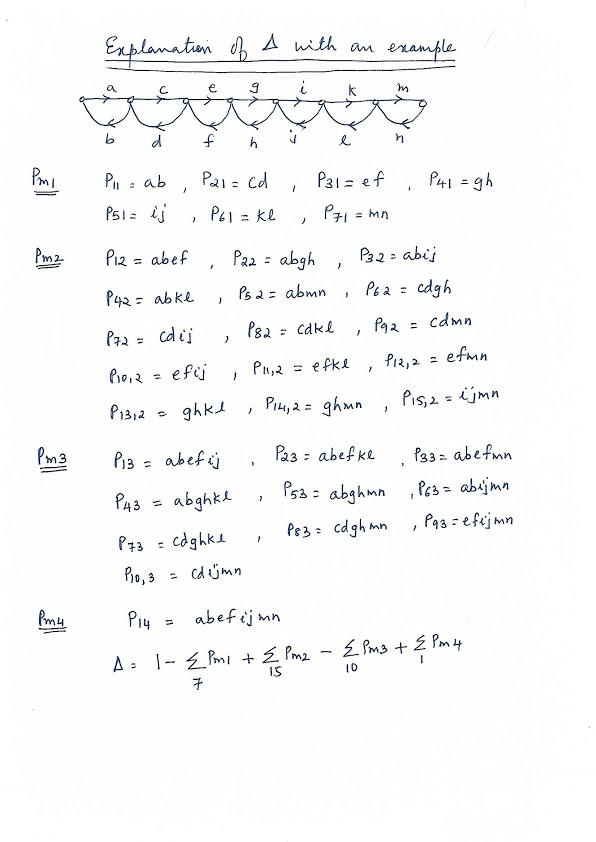 Explanation of Δ with an example
a c e g i k m
b d f h j l n
Pm1 P11 = ab , P21 = cd , P31 = ef , P41 = gh
P51 = ij , P61 = kl , P71 = mn
Pm2 P12 = abef , P22 = abgh , P32 = abij
P42 = abkl , P52 = abmn , P62 = cdgh
P72 = cdij , P82 = cdkl , P92 = cdmn
P10,2 = efij , P11,2 = efkl , P12,2 = efmn
P13,2 = ghkl , P14,2 = ghmn , P15,2 = ijmn
Pm3 P13 = abefij , P23 = abefkl , P33 = abefmn
P43 = abghkl , P53 = abghmn , P63 = abijmn
P73 = cdghkl , P83 = cdghmn , P93 = efijmn
P10,3 = cdijmn
Pm4 P14 = abefijmn
Δ = 1 - Σ Pm1 + Σ Pm2 - Σ Pm3 + Σ Pm4
7 15 10 1